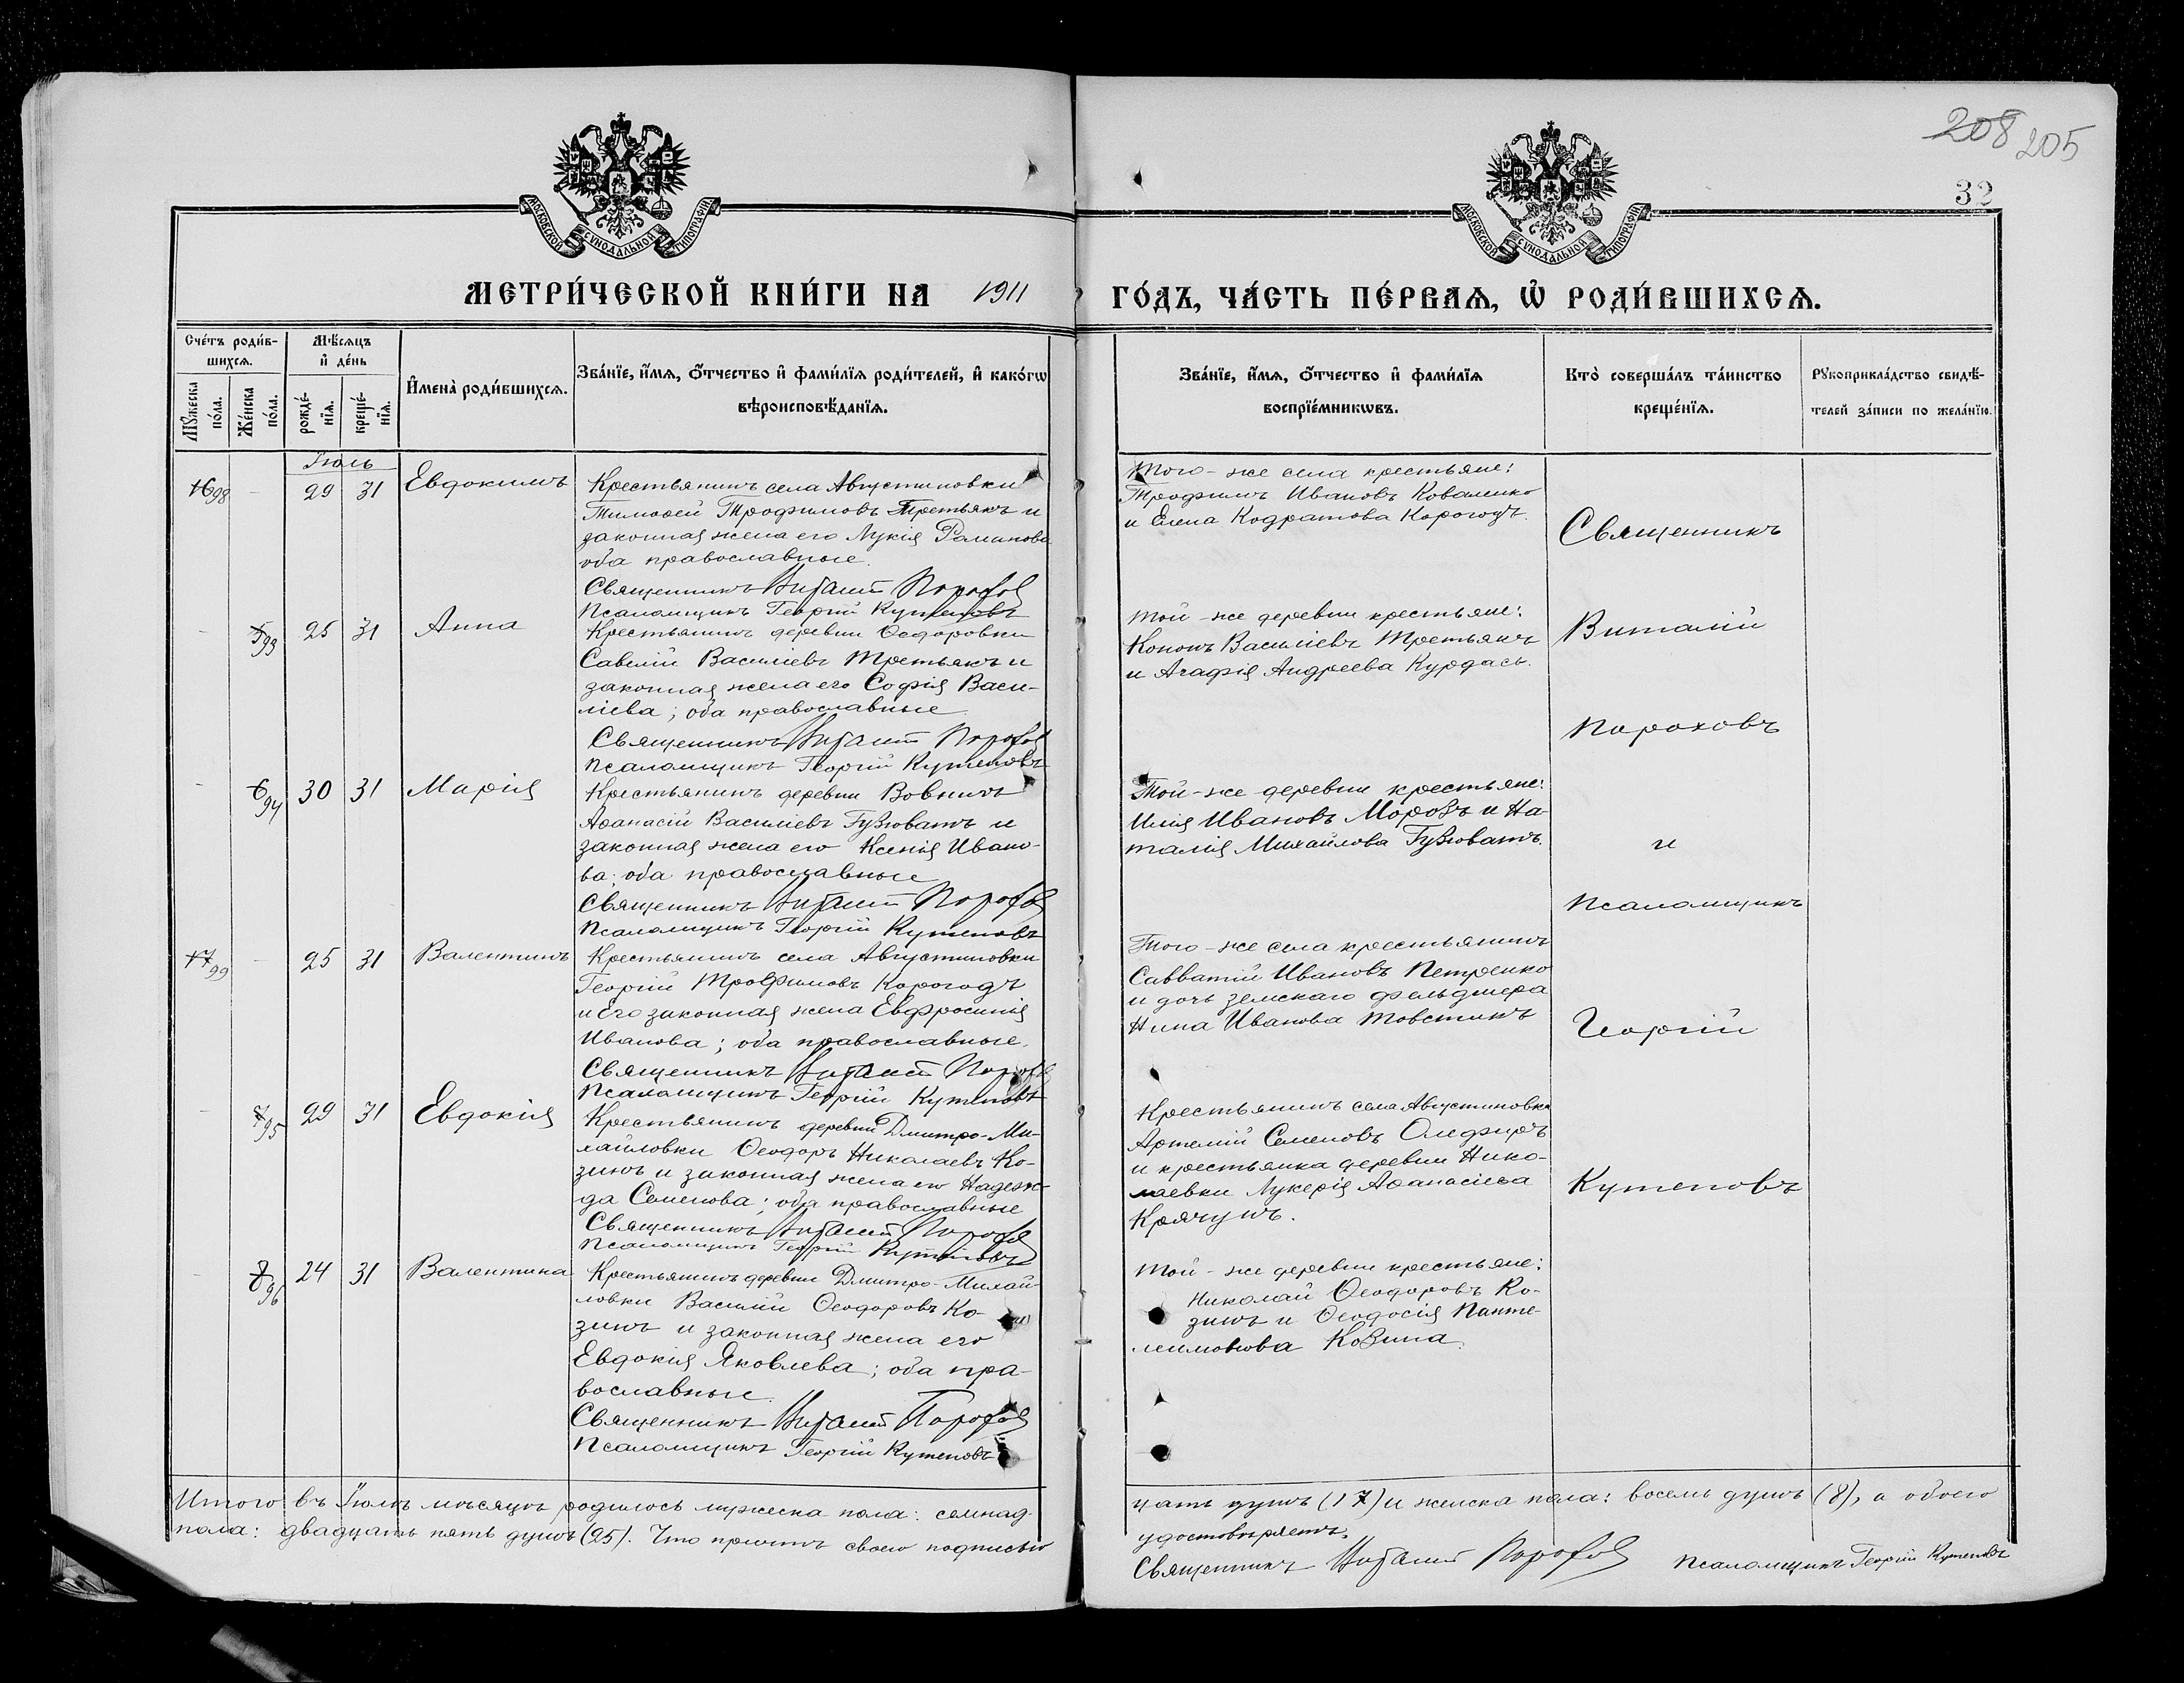 208 205
32
МОСКОВСКОЙ СѴНОДАЛЬНОЙ ТИПОГРАФІИ
МОСКОВСКОЙ СѴНОДАЛЬНОЙ ТИПОГРАФІИ
МЕТРИ́ЧЕСКОЙ КНИ́ГИ НА 1911 ГО́ДЪ, ЧА́СТЬ ПЕ́РВАѦ, Ѡ҆ РОДИ́ВШИХСѦ.
Сче́тъ роди́в-
шихсѧ.
Мꙋ́жеска
по́ла.
Же́нска
по́ла.
Мѣ́сѧцъ
и҆ де́нь
рожде́-
нїѧ.
креще́-
нїѧ.
И҆мена̀ роди́вшихсѧ.
Зва́нїе, и҆́мѧ, ѻ҆́тчество и҆ фами́лїѧ роди́телей, и҆ како́гѡ
вѣроисповѣ́данїѧ.
Зва́нїе, и҆́мѧ, ѻ҆́тчество и҆ фами́лїѧ
воспрїе́мникѡвъ.
Кто̀ соверша́лъ та́инство
креще́нїѧ.
Рꙋкоприкла́дство свидѣ́-
телей за́писи по жела́нїю.
Іюль
16 98 - 29 31 Евдокимъ
Крестьянинъ села Августиновки
Тимоѳей Трофимовъ Третьякъ и
законная жена его Лукія Романова
оба православные.
Священникъ Виталій Пороховъ
Псаломщикъ Георгій Кутеповъ
Того-же села крестьяне:
Трофимъ Ивановъ Коваленко
и Елена Кодратова Корогодъ.
- 5 93 25 31 Анна
Крестьянинъ деревни Ѳедоровки
Савелій Василіевъ Третьякъ и
законная жена его Софія Васи-
ліева; оба православные
Священникъ Виталій Пороховъ
Псаломщикъ Георгій Кутеповъ
Той-же деревни крестьяне:
Кононъ Василіевъ Третьякъ
и Агафія Андреева Курдась.
- 6 94 30 31 Марія
Крестьянинъ деревни Вовнигъ
Аѳанасій Василіевъ Гузоватъ и
законная жена его Ксенія Ивано-
ва; оба православные
Священникъ Виталій Пороховъ
Псаломщикъ Георгій Кутеповъ
Той-же деревни крестьяне:
Илія Ивановъ Морозъ и На-
талія Михайлова Гузоватъ.
17 99 - 25 31 Валентинъ
Крестьянинъ села Августиновки
Георгій Трофимовъ Корогодъ
и его законная жена Евфросинія
Иванова; оба православные.
Священникъ Виталій Пороховъ
Псаломщикъ Георгій Кутеповъ
Того-же села крестьянинъ
Савватій Ивановъ Петренко
и дочь земскаго фельдшера
Нина Иванова Товстикъ
- 7 95 29 31 Евдокія
Крестьянинъ деревни Дмитро-Ми-
хайловки Ѳеодоръ Николаевъ Ко-
зинъ и законная жена его Надеж-
да Семенова; оба православные
Священникъ Виталій Пороховъ
Псаломщикъ Георгій Кутеповъ
Крестьянинъ села Августиновки
Артемій Семеновъ Олефиръ
и крестьянка деревни Нико-
лаевки Лукерія Аѳанасіева
Крячунъ.
- 8 96 24 31 Валентина
Крестьянинъ деревни Дмитро-Михай-
ловки Василій Ѳеодоровъ Ко-
зинъ и законная жена его
Евдокія Яковлева; оба пра-
вославные.
Священникъ Виталій Пороховъ
Псаломщикъ Георгій Кутеповъ
Той-же деревни крестьяне:
Николай Ѳеодоровъ Ко-
зинъ и Ѳеодосія Панте-
леимонова Козина.
Священникъ
Виталій
Пороховъ
и
Псаломщикъ
Георгій
Кутеповъ
Итого въ Іюлѣ мѣсяцѣ родилось мужеска пола: семнад-
цать душъ (17) и женска пола: восемь душъ (8), а обоего
пола: двадцать пять душъ (25). Что причтъ своею подписью
удостовѣряетъ.
Священникъ Виталій Пороховъ Псаломщикъ Георгій Кутеповъ